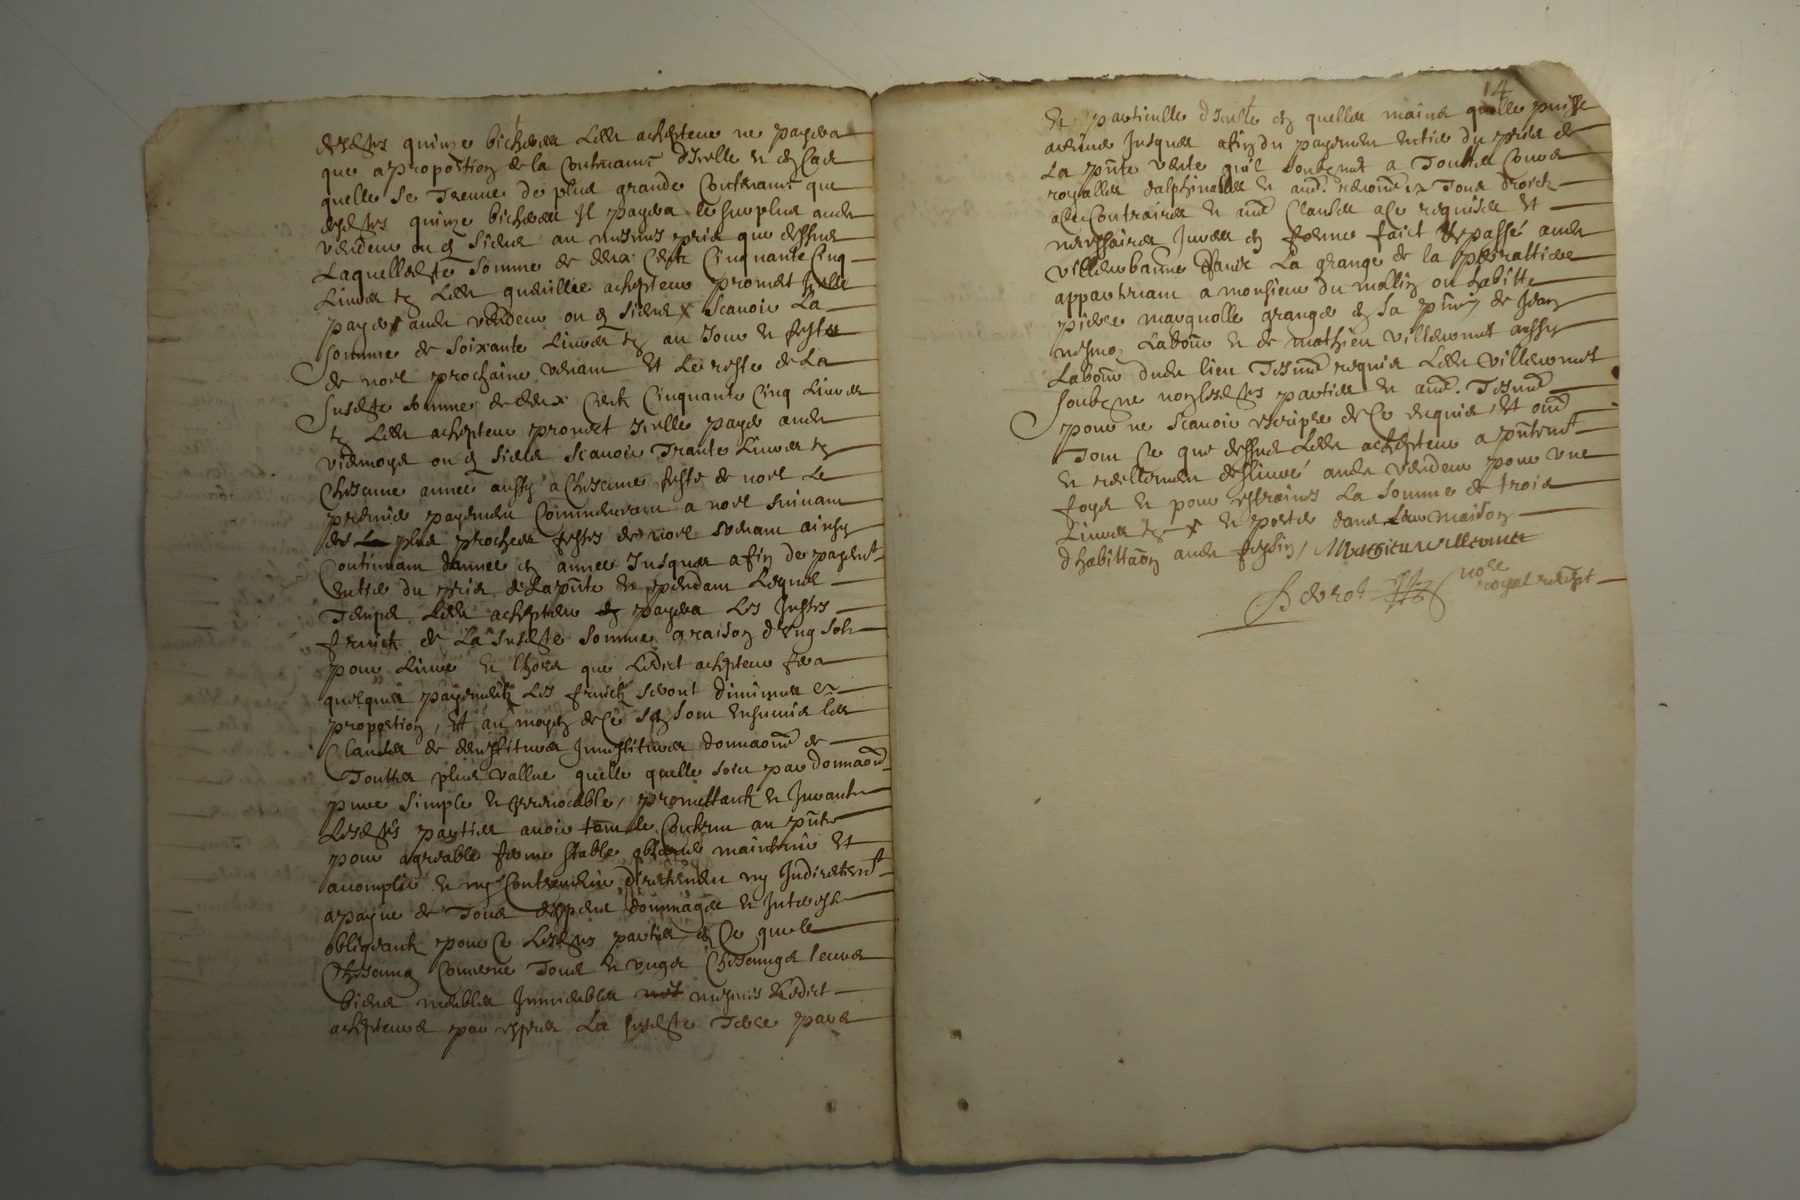 desdites quinze bicherees ledit achepteur ne payera
que a proportion de la contenant d'icelle et en cas
quelle se treuve de plus grande contenant que
desdites quinze bicherees Il payera le surplus audit
vendeur ou es siens au mesmes pris que dessus
Laquelledite somme de deux cents cinquante cinq
Livres tz ledit achepteur promet Icelle
payer audit vendeur ou es siens x scavoir La
somme de soixante Livres tz au Jour et feste
de noel prochaine venant Et Le reste de La
susdite somme de deux cents cinquante cinq Livres
tz Ledit achepteur promet icelle payer audit
ou es siens scavoir Trante Livres tz
Chescune annee aussy a Chescune feste de noel Le
premier payement Commencant a noel suivant
des plus proches festes de noel venant ainsy
Continuant d'annee en annee Jusques a fin de payent
entier du pris de La pnte et pendant Lequel
Temps Ledit achepteur payera Les Justes
fruictz de La susdite somme a raison d'ung solz
pour Livre et lhors que Ledict achepteur fera
quelques payementz Les fruictz seront diminues a
proportion, Et au moyen de Ce sen sont ensuivis les
Clauses de devestitures Investitures donnaons de
Touttes plus vallue quelle quelle soict par donnaon
pure simple et Irrevocable, promettantz et Jurantz
Lesdites parties avoir tout le Contenu au pnte
pour agreable ferme stable observer maintenir Et
accomplir et ny Contrevenir directement ny Indirectement
a payne de Tous despens dommages et Interestz
obligeantz pour Ce Lesdites parties en Ce que le
Chescung Concerne Tous et ungs Chescungs leurs
biens meubles Immeubles mesmes Ledict
achepteur par expres La susdite Terre pars
14
et particulle d'Icelle en quelles mains quelle puisse
advenir Jusques a fin du payement entier du pris de
La pnte vente quil soubzmet a Touttes Cours
royalles dalphinalles et aues renonceans Tous droictz
a Ce Contraires et aues Clauses a Ce requises Et
necessaires Jurees en forme faict et passé audit
villeurbanne dans La grange de la
appartenant a monsieur du mollin ou habitte
pierre marquolle granger en sa pnce de Jean
Labour et de mathieu villermet aussy
Labour dudit lieu Tesmoins requis Ledit villermet
soubzne non lesdites parties et aue. Tesmoin
pour ne scavoir escripre de Ce enquis, Et
Tout Ce que dessus Ledit achepteur a pntement
et reellement deslivré audit vendeur pour une
foys et pour estraines La somme de trois
Livres tz x et portes dans Leur maison
dhabittaon audit / Mathieu villermet
not
royal recept